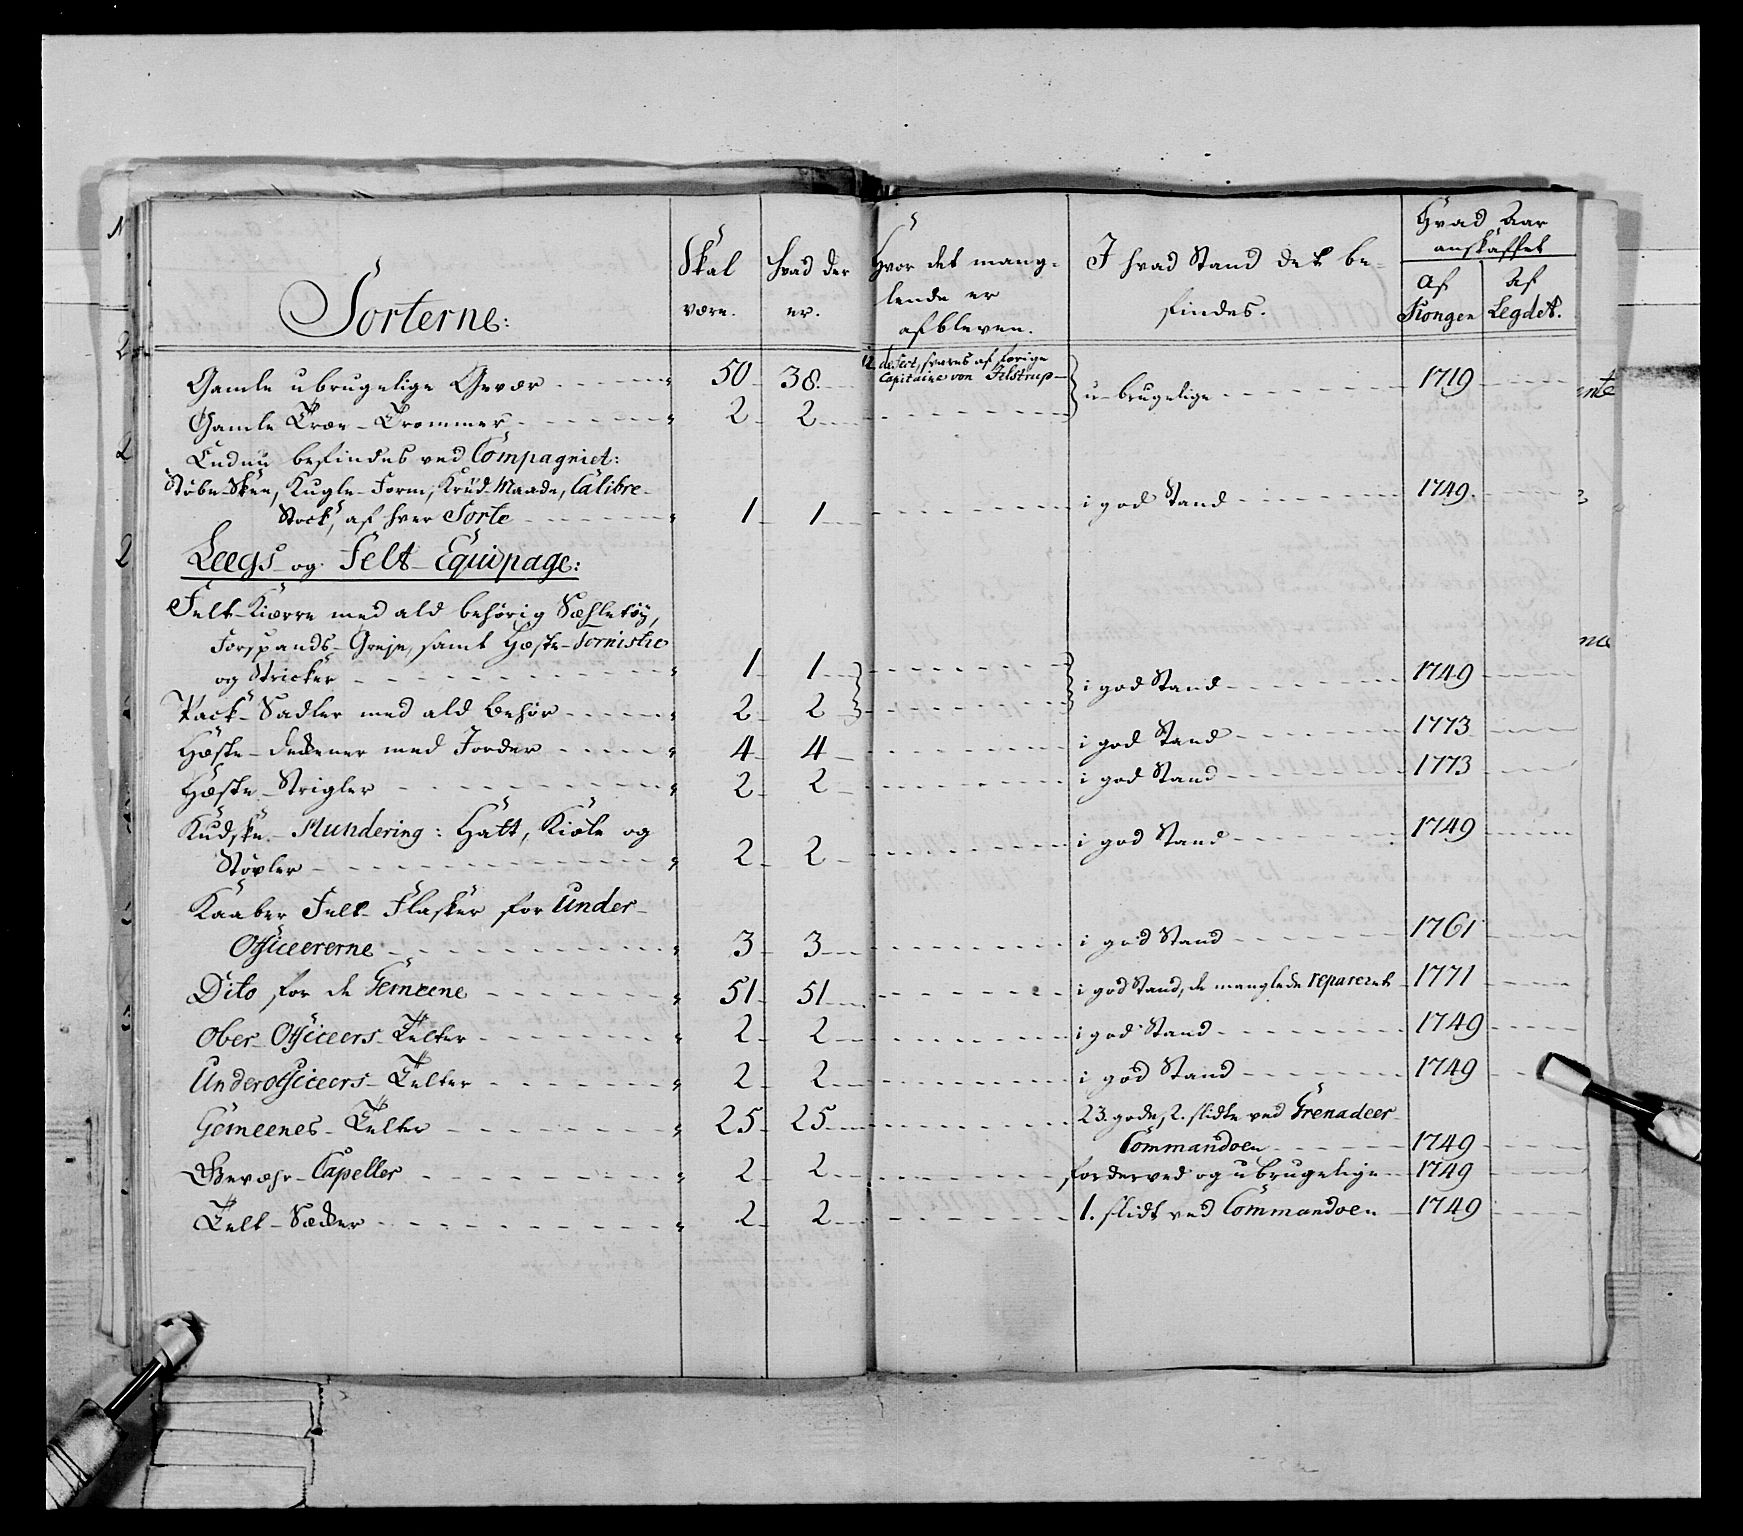 Sorterne: Skal være. hvad der er. Hvor det mang-lende er afbleven. I hvad Stand det be-findes. Hvad Aar anskaffet af Kongen af Legdet.
Gamle ubrugelige Gevær 50 38. 12 desert, svares af forige Capitaine von u-brugelige 1719
Gamle Træe-Trommer 2 2
Endnu befindes ved Compagniet:
Støbe-Skee, Kugle-Form, Krud-Maade, Calibre-
Stock, af hver Sorte 1 1 i god Stand 1749.
Leegs- og Felt-Equipage:
Felt-Kiærre med ald behørig Sæhletøy,
Forspands-Greje, samt Hæste-Tornister
og Stricker 1 1 i god Stand 1749
Pack-Sadler med ald behør 2 2
Hæste-deckener med Jorder 4 4 i god Stand 1773
Hæste-Strigler 2 2 i god Stand 1773
Kudske-Mundering: Hatt, Kiole og
Støvler 2 2 i god Stand 1749
Kaaber Felt-Flasker for Under-
Officeererne 3 3 i god Stand 1761
Dito for de Gemeene 51 51 i god Stand, de manglede repareret 1771
Ober-Officeers-Telter 2 2 i god Stand 1749
Underofficeers-Telter 2 2 i god Stand 1749
Gemeenes-Telter 25 25 23. gode, 2. slidte ved Grenadeer-
Commandoen 1749
Gevæhr-Capeller 2 2 forderved og ubrugelige 1749
Telt-Sæcker 2 2 1. slidt ved Commandoen 1749